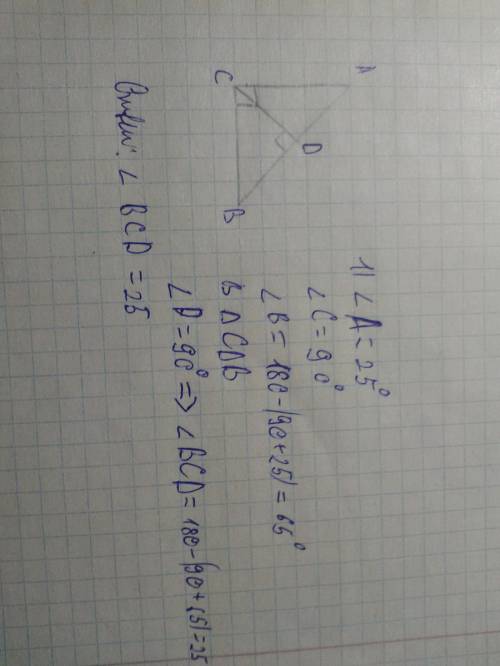 A
D
C
B
1) ∠A=25°
∠C=90°
∠B=180-(90+25)=65°
В ΔCDB
∠D=90°=>∠BCD=180-(90+65)=25
Ответ: ∠BCD=25